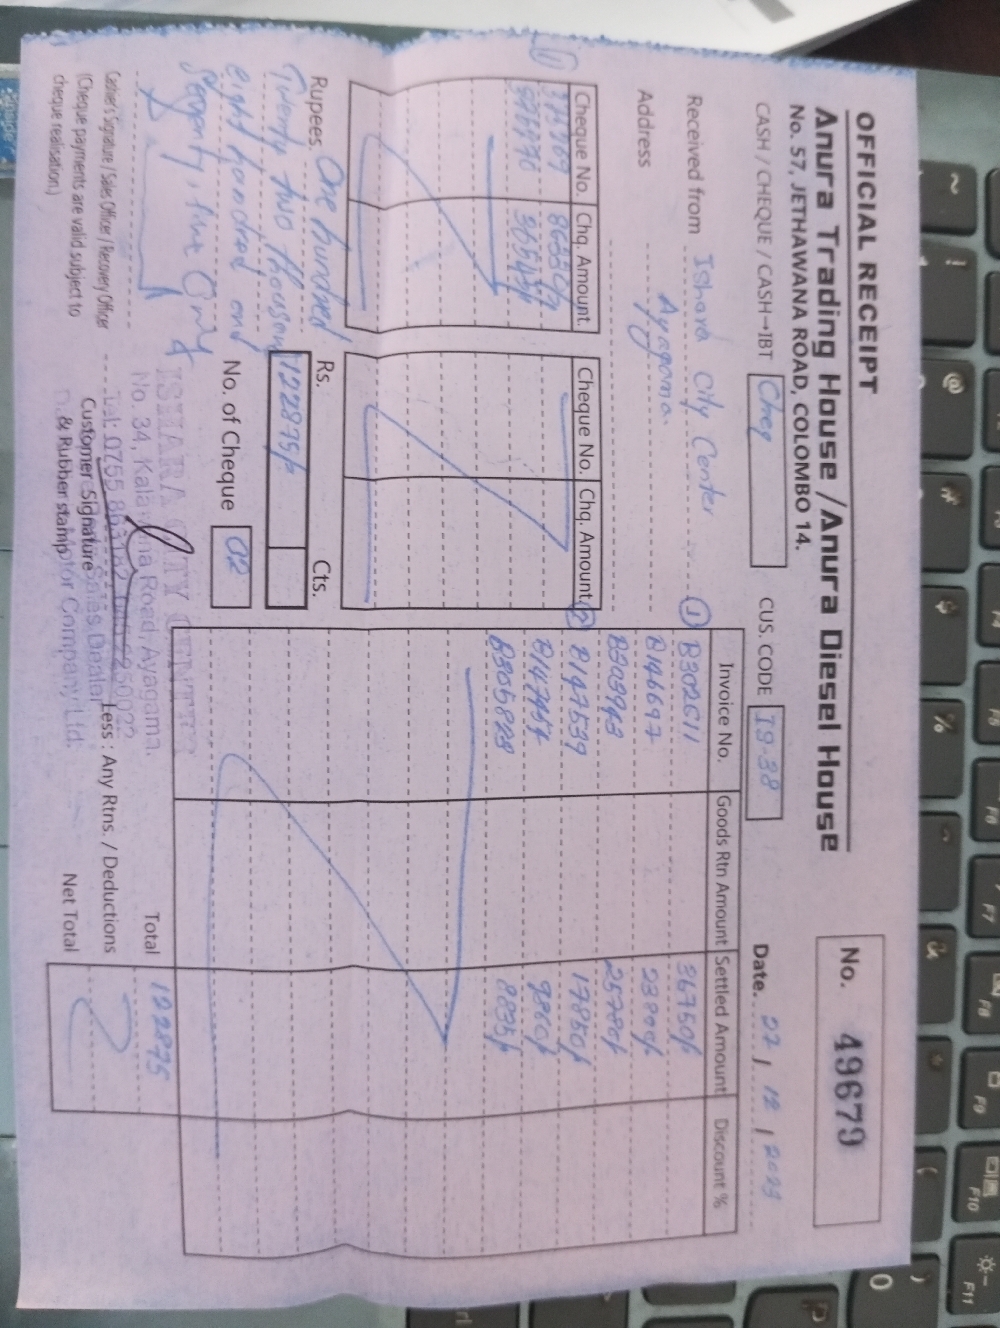 OFFICIAL RECEIPT
No. 49679
Anura Trading House / Anura Diesel House
No. 57, JETHAWANA ROAD, COLOMBO 14.
CASH / CHEQUE / CASH→IBT Cheq CUS. CODE I9-38 Date. 22 / 12 / 2023
Received from Ishara City Center
Address Ayagama.
Cheque No. Chq. Amount. Cheque No. Chq. Amount
Invoice No. Goods Rtn Amount Settled Amount Discount %
① B302611 36750/-
B146697 23800/-
B303943 25780/-
② B147539 17850/-
9860/-
8835/-
Rupees One hundred
Twenty two thousand
eight hundred and
Seventy five Only
Rs. Cts.
122875/-
No. of Cheque 02
Total 122875
Less : Any Rtns. / Deductions
Net Total
ISHARA CITY CENTER
No. 34, Kalawana Road, Ayagama.
Cashier's Signature / Sales Officer / Recovery Officer
(Cheque payments are valid subject to
cheque realisation.)
Customer Signature
& Rubber stamp
Sales Dealer
Motor Company Ltd.
~ ! @ # $ % ^ & * ( )
F4 F5 F6 F7 F8 F9 F10 F11
0 P